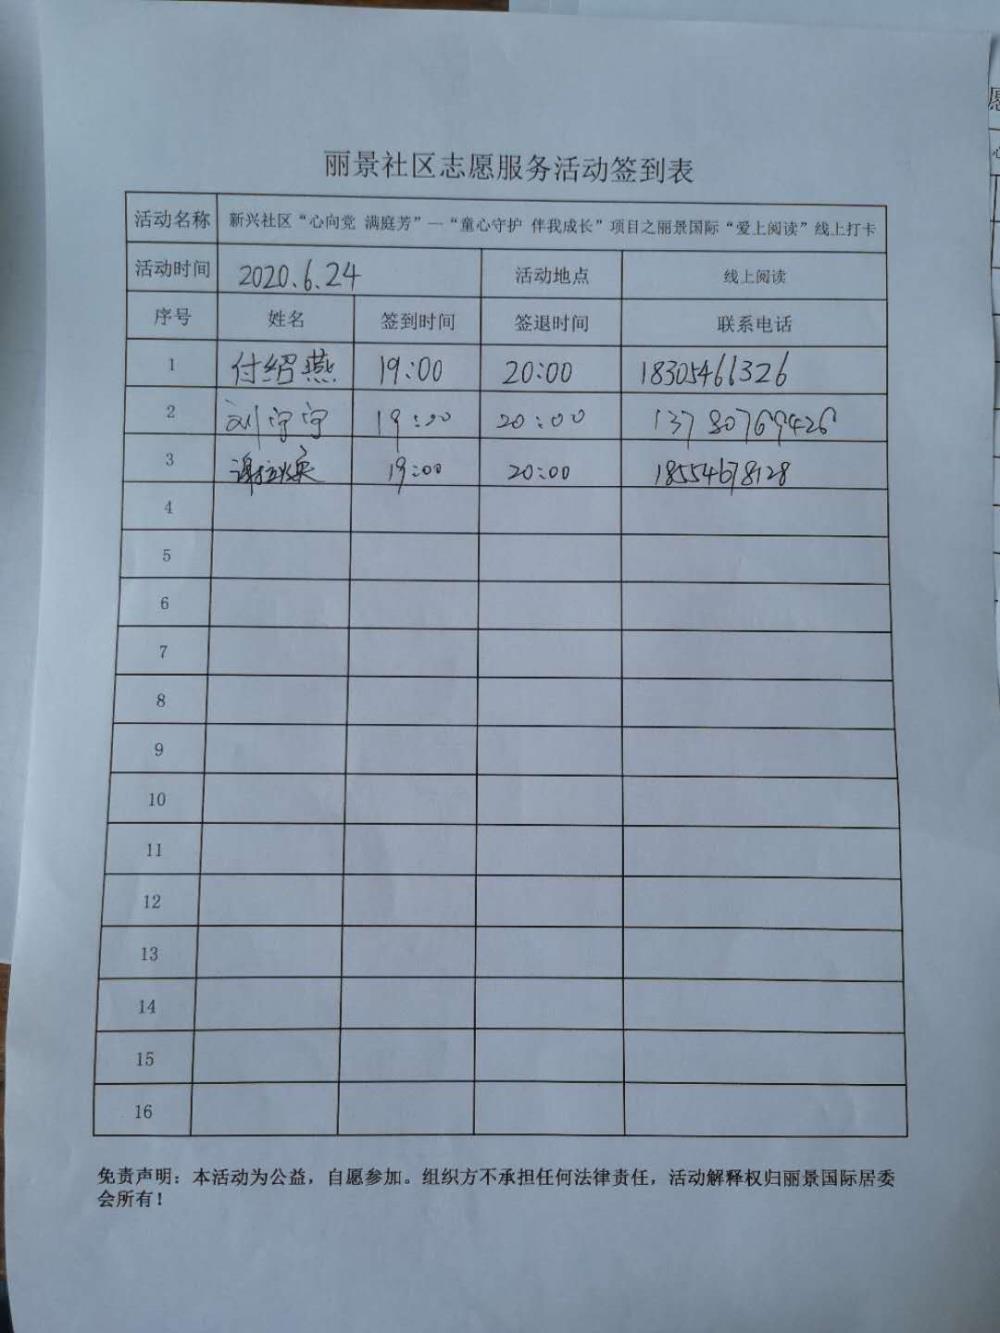 丽景社区志愿服务活动签到表
活动名称 新兴社区“心向党 满庭芳”—“童心守护 伴我成长”项目之丽景国际“爱上阅读”线上打卡
活动时间 2020.6.24 活动地点 线上阅读
序号 姓名 签到时间 签退时间 联系电话
1 付绍燕 19:00 20:00 18305461326
2 刘宁宁 19:00 20:00 13780769426
3 谢 19:00 20:00 18554678128
4
5
6
7
8
9
10
11
12
13
14
15
16
免责声明：本活动为公益，自愿参加。组织方不承担任何法律责任，活动解释权归丽景国际居委
会所有！